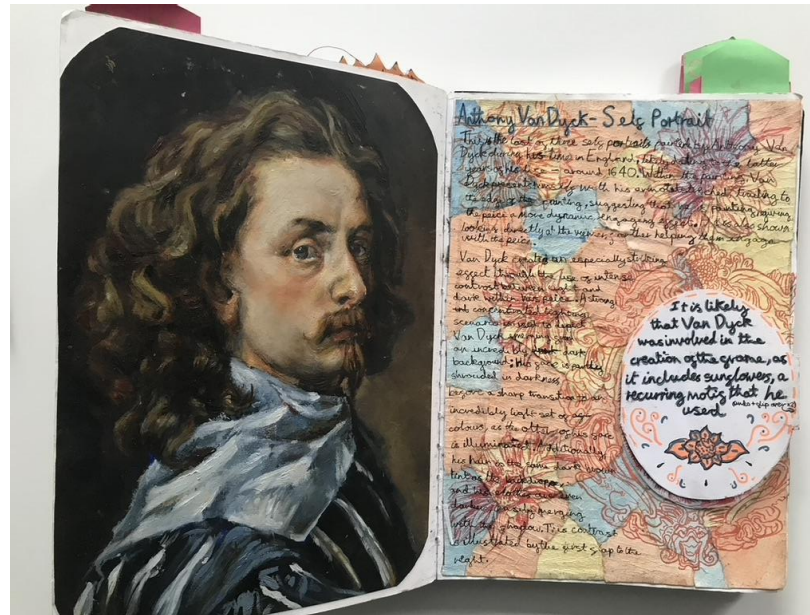 Anthony Van Dyck - Self Portrait
This is the last of three self portraits painted by Anthony Van
Dyck during his time in England, likely dating to the latter
years of his - around 1640. Within the painting Van
Dyck presents himself with his arm
the edge of the painting, suggesting that he is painting, giving
the peice a more dynamic, engaging effect. He is also shown
looking directly at the viewer, further helping them engage
with the peice.
Van Dyck created an especially striking
effect through the use of intense
contrast between light and
dark within his peice. A strong
and concentrated lighting
scenario is used to depict
Van Dyck emerging from
an incredibly dark
background. His face is partly
shrouded in darkness
before a sharp transition to an
incredibly light set of
colours, as the other of his face
is illuminated. Additionally
his hair is the same dark brown
tint as the backdrop,
and his clothes are even
darker, merging
with the shadow. This contrast
is illustrated by the first flap to the
right.
It is likely
that Van Dyck
was involved in the
creation of the frame, as
it includes sunflowers, a
recurring motif that he
used